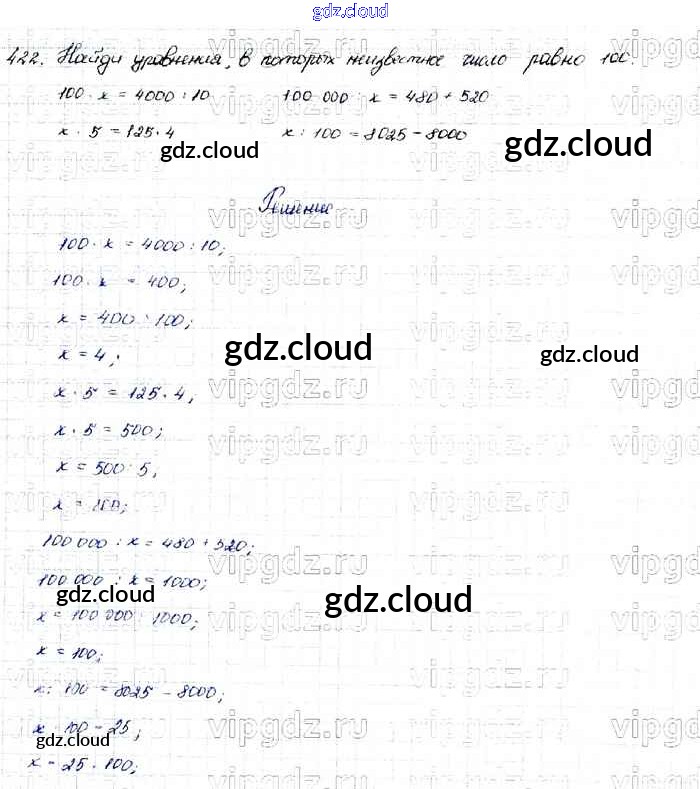 gdz.cloud
422. Найди уравнения, в которых неизвестное число равно 100.
100 · x = 4000 : 10 100 000 : x = 480 + 520
x · 5 = 125 · 4 x : 100 = 8025 - 8000
gdz.cloud gdz.cloud
Решение
100 · x = 4000 : 10;
100 · x = 400;
x = 400 : 100;
gdz.cloud gdz.cloud
x = 4;
x · 5 = 125 · 4,
x · 5 = 500;
x = 500 : 5,
x = 100;
100 000 : x = 480 + 520;
100 000 : x = 1000;
gdz.cloud gdz.cloud
x = 100 000 : 1000;
x = 100;
x : 100 = 8025 - 8000;
x : 100 = 25;
gdz.cloud
x = 25 · 100;
vipgdz.ru